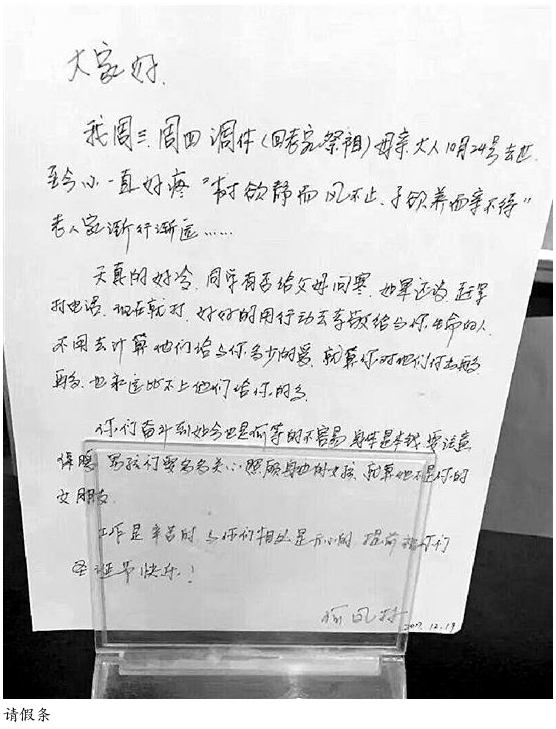 大家好.
我周三.周四调休(回老家祭祖)母亲大人10月24号去世.
至今心一直好疼“树欲静而风不止.子欲养而亲不待”
老人家渐行渐远……
天真的好冷.同学有否给父母问寒.如果还没.赶紧
打电话.现在就打.好好的用行动去孝敬给与你生命的人.
不用去计算他们给与你多少的爱.就算你对他们付出再多
再多.也永远比不上他们给你的多.
你们奋斗到如今也是何等的不容易.身体是本钱.要注意
保暖.男孩们要多多关心.照顾身边的女孩.就算她不是你的
女朋友.
工作是辛苦的.与你们相处是开心的.提前祝你们
圣诞节快乐!
2017.12.19
请假条